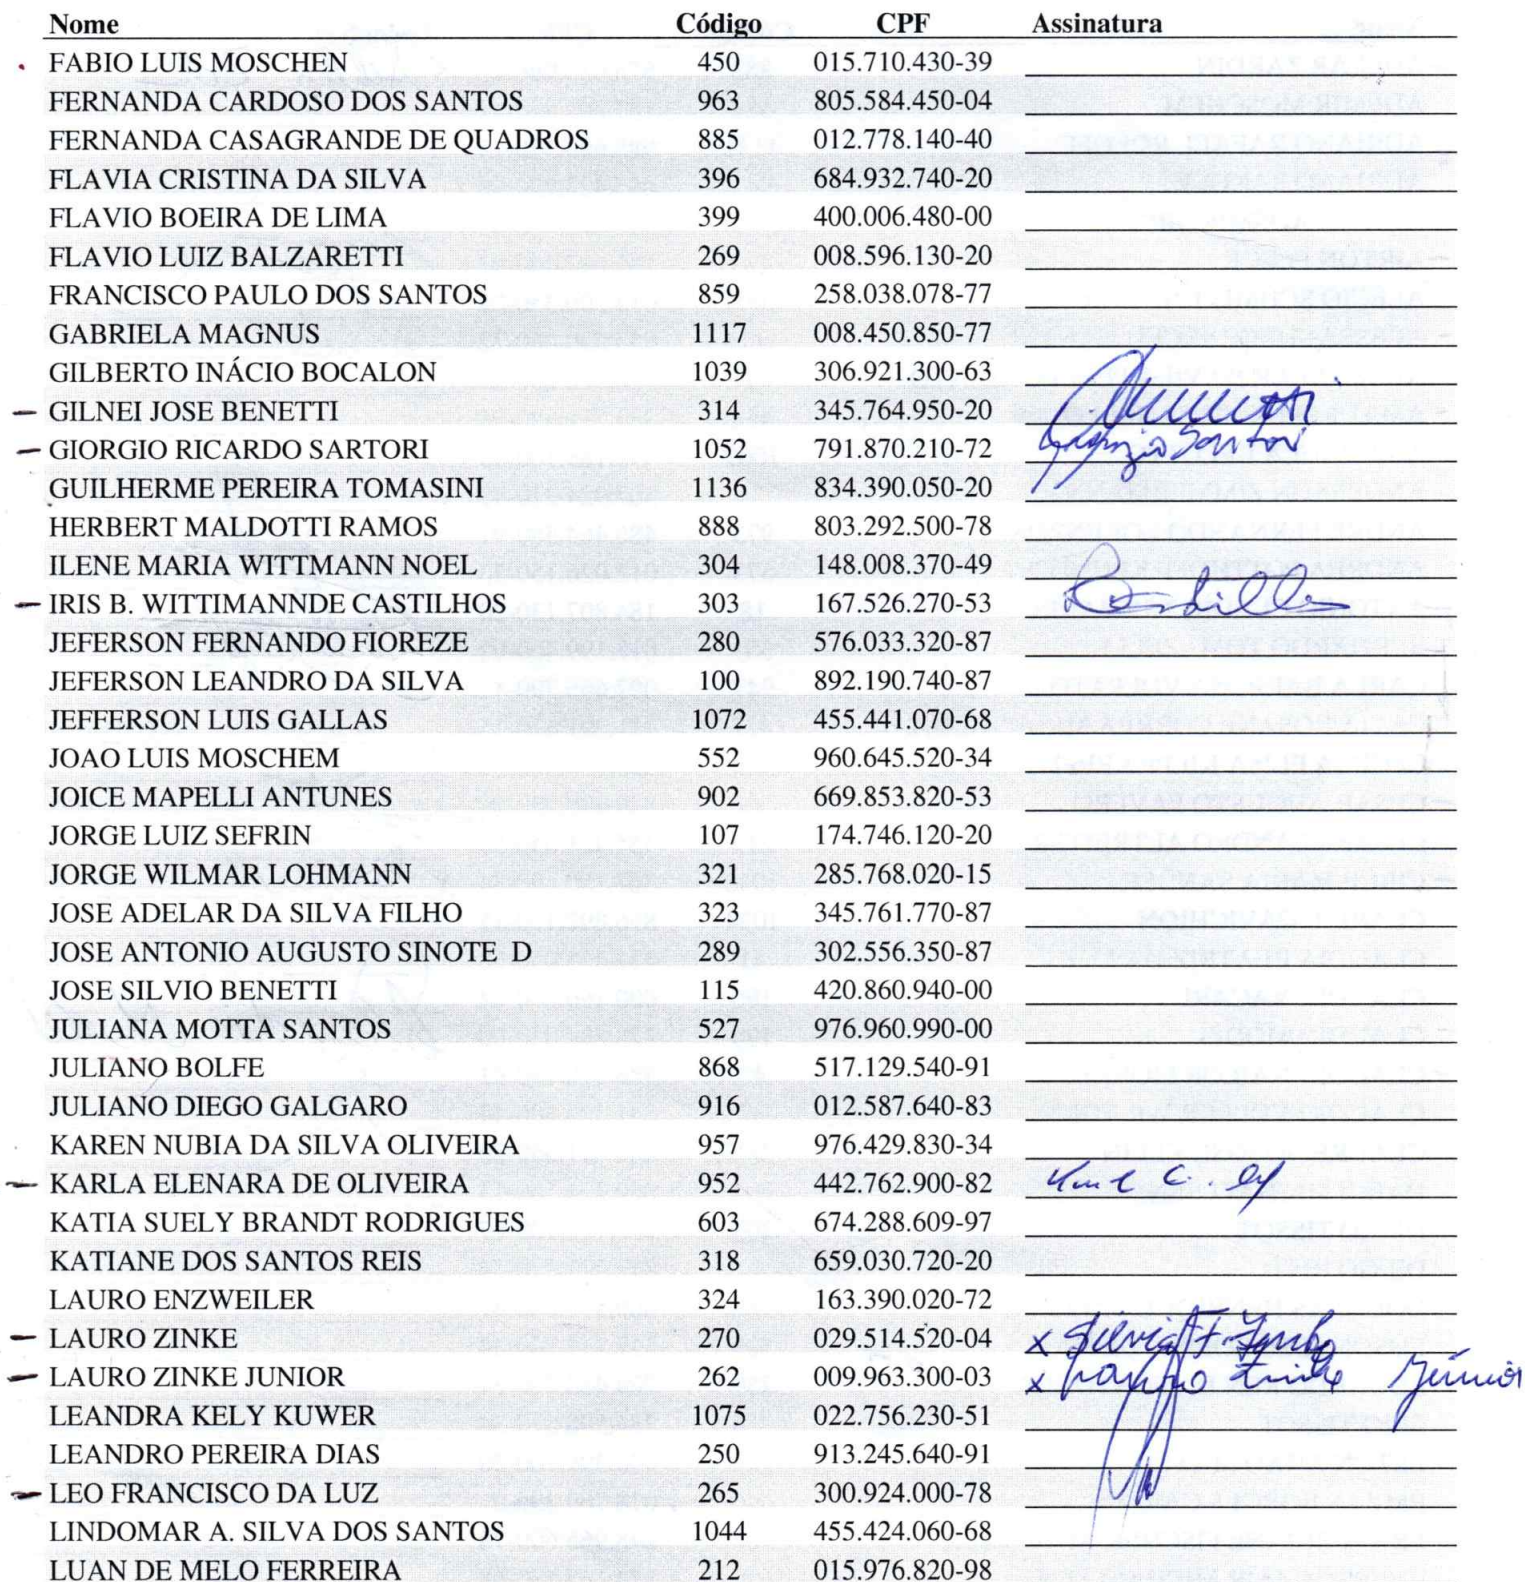 Nome Código CPF Assinatura
FABIO LUIS MOSCHEN 450 015.710.430-39
FERNANDA CARDOSO DOS SANTOS 963 805.584.450-04
FERNANDA CASAGRANDE DE QUADROS 885 012.778.140-40
FLAVIA CRISTINA DA SILVA 396 684.932.740-20
FLAVIO BOEIRA DE LIMA 399 400.006.480-00
FLAVIO LUIZ BALZARETTI 269 008.596.130-20
FRANCISCO PAULO DOS SANTOS 859 258.038.078-77
GABRIELA MAGNUS 1117 008.450.850-77
GILBERTO INÁCIO BOCALON 1039 306.921.300-63
GILNEI JOSE BENETTI 314 345.764.950-20
GIORGIO RICARDO SARTORI 1052 791.870.210-72 Giorgio Sartori
GUILHERME PEREIRA TOMASINI 1136 834.390.050-20
HERBERT MALDOTTI RAMOS 888 803.292.500-78
ILENE MARIA WITTMANN NOEL 304 148.008.370-49
IRIS B. WITTIMANNDE CASTILHOS 303 167.526.270-53
JEFERSON FERNANDO FIOREZE 280 576.033.320-87
JEFERSON LEANDRO DA SILVA 100 892.190.740-87
JEFFERSON LUIS GALLAS 1072 455.441.070-68
JOAO LUIS MOSCHEM 552 960.645.520-34
JOICE MAPELLI ANTUNES 902 669.853.820-53
JORGE LUIZ SEFRIN 107 174.746.120-20
JORGE WILMAR LOHMANN 321 285.768.020-15
JOSE ADELAR DA SILVA FILHO 323 345.761.770-87
JOSE ANTONIO AUGUSTO SINOTE D 289 302.556.350-87
JOSE SILVIO BENETTI 115 420.860.940-00
JULIANA MOTTA SANTOS 527 976.960.990-00
JULIANO BOLFE 868 517.129.540-91
JULIANO DIEGO GALGARO 916 012.587.640-83
KAREN NUBIA DA SILVA OLIVEIRA 957 976.429.830-34
KARLA ELENARA DE OLIVEIRA 952 442.762.900-82
KATIA SUELY BRANDT RODRIGUES 603 674.288.609-97
KATIANE DOS SANTOS REIS 318 659.030.720-20
LAURO ENZWEILER 324 163.390.020-72
LAURO ZINKE 270 029.514.520-04 x
LAURO ZINKE JUNIOR 262 009.963.300-03 x Zinke Júnior
LEANDRA KELY KUWER 1075 022.756.230-51
LEANDRO PEREIRA DIAS 250 913.245.640-91
LEO FRANCISCO DA LUZ 265 300.924.000-78
LINDOMAR A. SILVA DOS SANTOS 1044 455.424.060-68
LUAN DE MELO FERREIRA 212 015.976.820-98